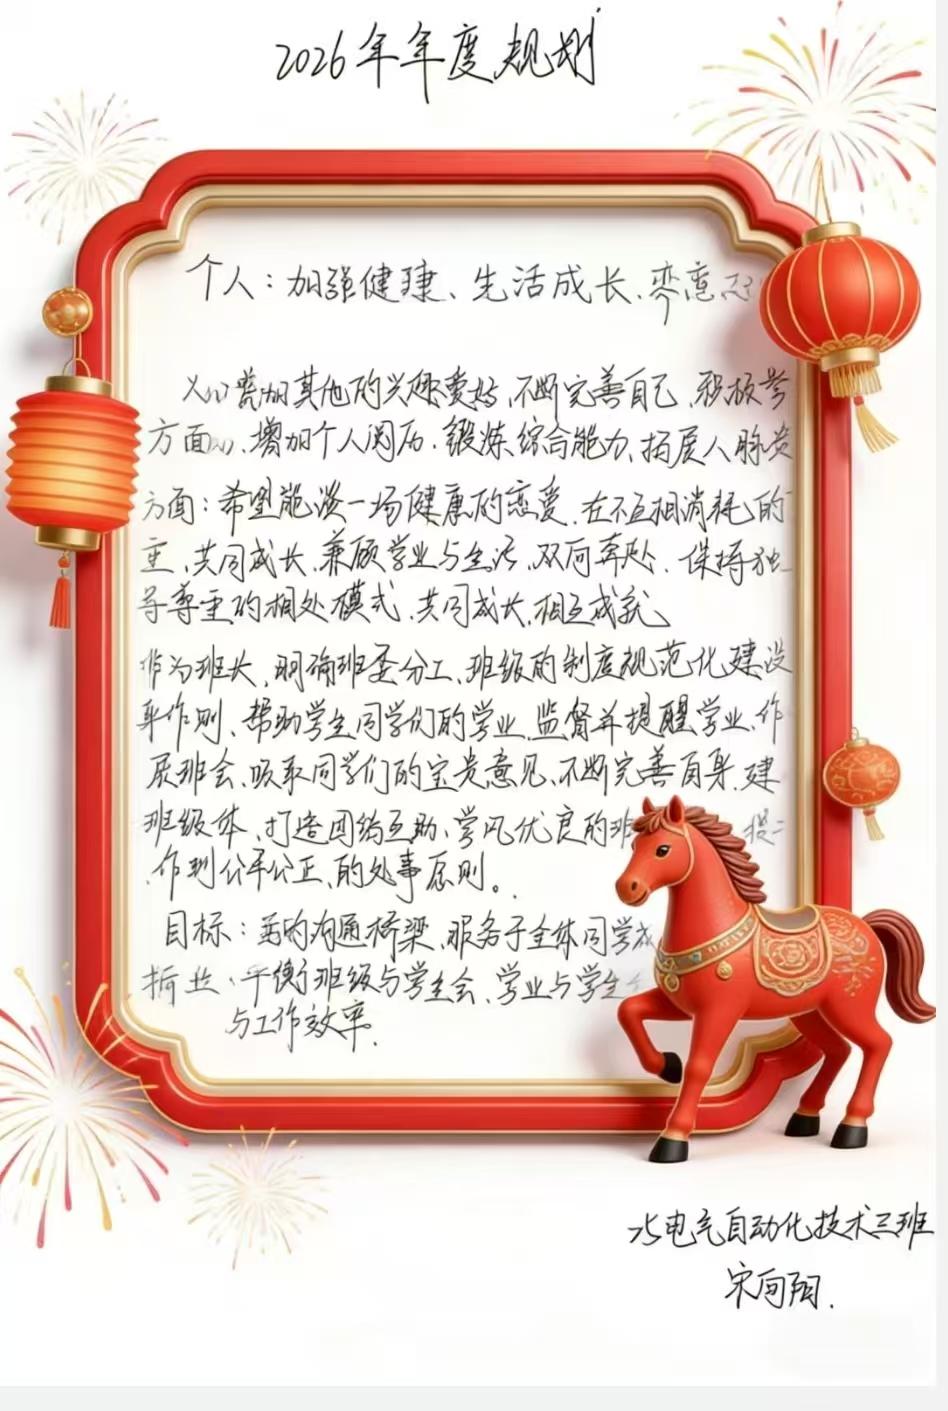 2026年年度规划
个人：加强健康、生活成长、
其他的兴趣爱好,不断完善自己、积极参
方面 、增加个人阅历、锻炼综合能力、拓展人脉资
方面：希望能谈一场健康的恋爱、在不互相消耗的
重、共同成长、兼顾学业与生活,双向奔赴、保持独
等尊重的相处模式、共同成长,相互成就
作为班长,明确班委分工、班级的制度规范化建设
身作则、帮助学生同学们的学业、监督并提醒学业、作
展班会、吸取同学们的宝贵意见、不断完善自身、建
班级体、打造团结互助、学风优良的班
作到公平公正、的处事原则。
目标： 的沟通桥梁、服务于全体同学
平衡班级与学生会、学业与学生
与工作效率.
25电气自动化技术三班
宋向阳.